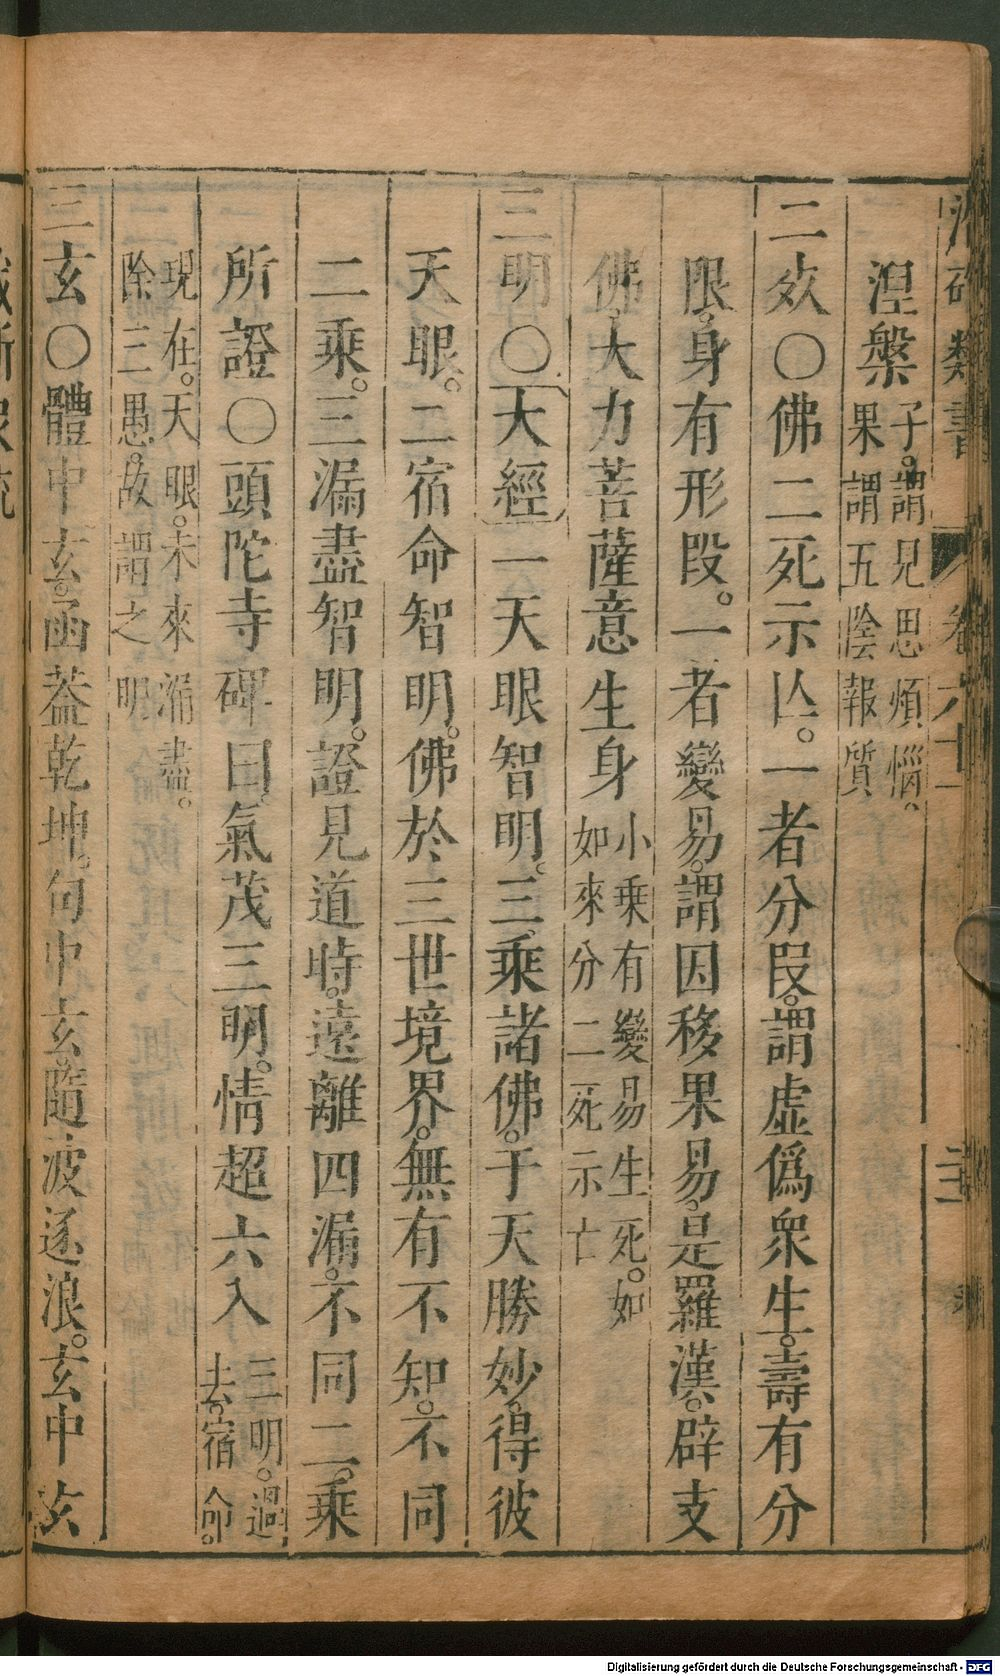 涅槃 子。謂見思煩惱。
果謂五陰報質
二效〇佛二死示亾。一者分段。謂虛僞衆生。壽有分
限。身有形段。一者變易。謂因移果易。是羅漢。辟支
佛。大力菩薩意生身 小乘有變易生死。如
如來分二死示亡
三明〇大經一天眼智明。三乘諸佛。于天勝妙。得彼
天眼。二宿命智明。佛於三世境界。無有不知。不同
二乘。三漏盡智明。證見道時。遠離四漏。不同二乘
所證〇頭陀寺碑曰。氣茂三明。情超六入 三明。過
去。宿命。
現在。天眼。未來漏盡。
除三愚。故謂之明
三玄〇體中玄。函葢乾坤。句中玄。隨波逐浪。玄中玄
類書
卷六十一
Digitalisierung gefördert durch die Deutsche Forschungsgemeinschaft - DFG